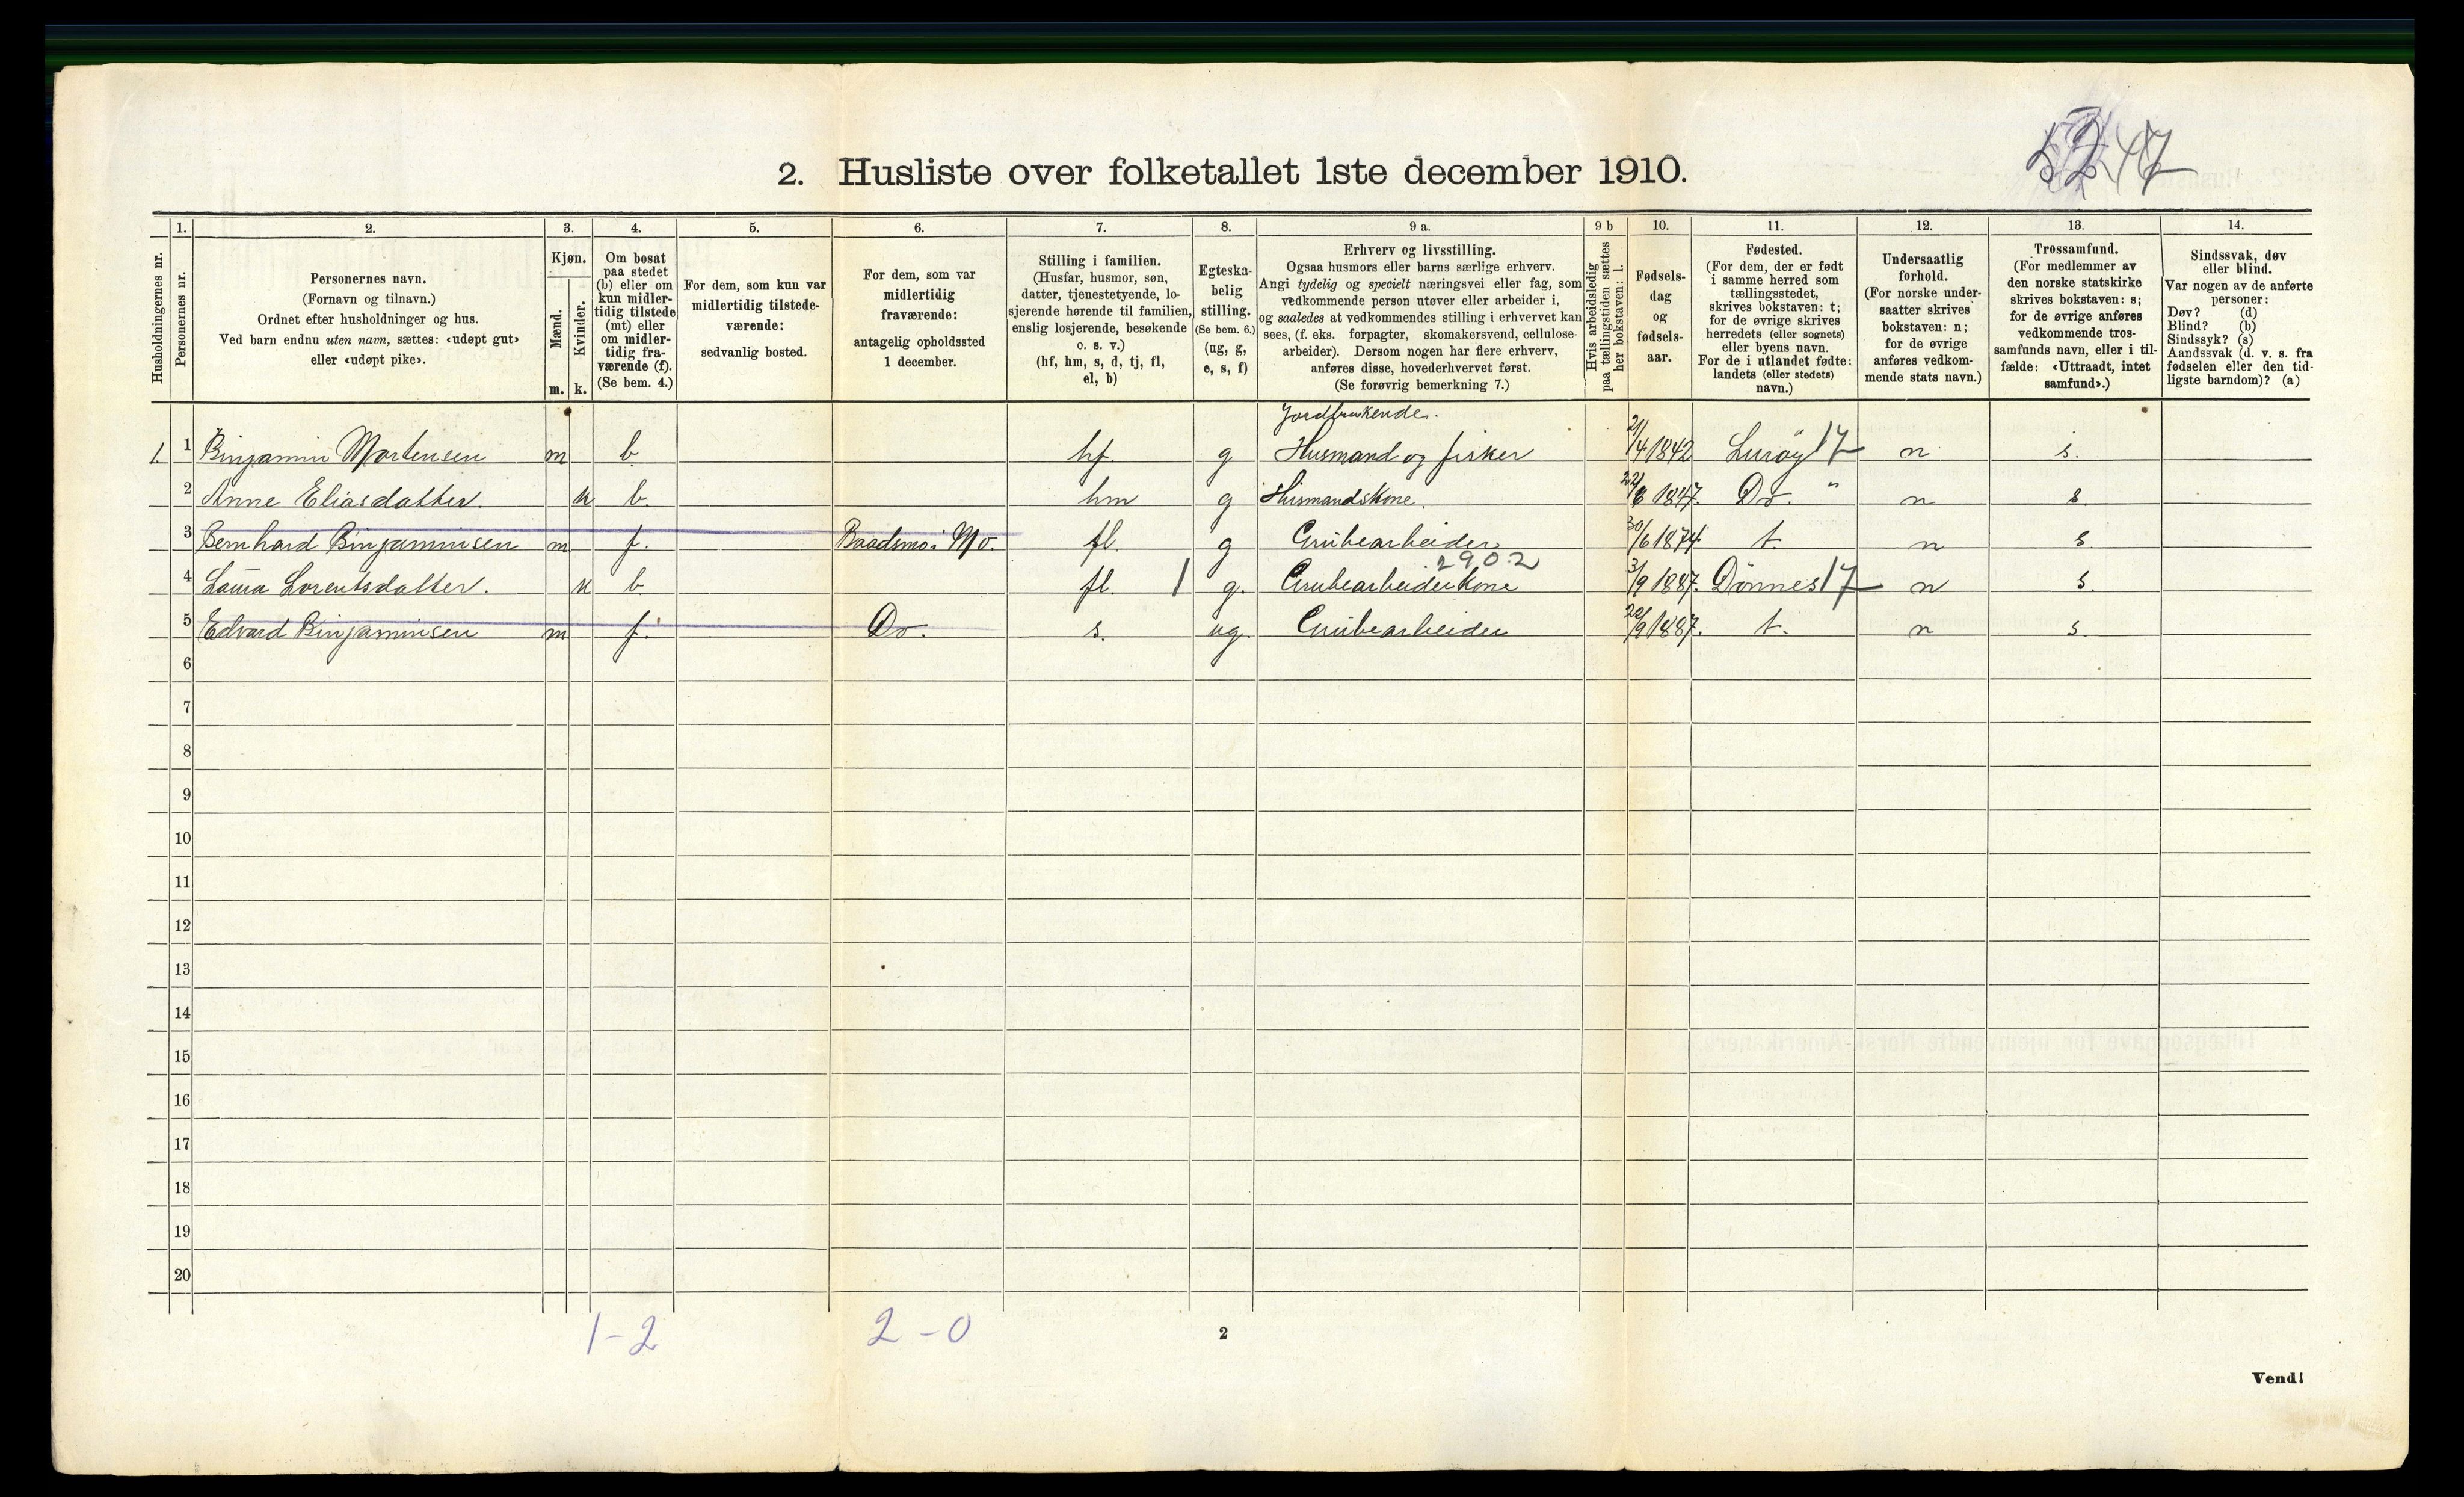 2. Husliste over folketallet 1ste december 1910.
Husholdningernes nr.
1.
Personernes nr.
2.
Personernes navn.
(Fornavn og tilnavn.)
Ordnet efter husholdninger og hus.
Ved barn endnu uten navn, sættes: «udøpt gut»
eller «udøpt pike».
3.
Kjøn.
Mænd.
Kvinder.
m. k.
4.
Om bosat
paa stedet
(b) eller om
kun midler-
tidig tilstede
(mt) eller
om midler-
tidig fra-
værende (f).
(Se bem. 4.)
5.
For dem, som kun var
midlertidig tilstede-
værende:
sedvanlig bosted.
6.
For dem, som var
midlertidig
fraværende:
antagelig opholdssted
1 december.
7.
Stilling i familien.
(Husfar, husmor, søn,
datter, tjenestetyende, lo-
sjerende hørende til familien,
enslig losjerende, besøkende
o. s. v.)
(hf, hm, s, d, tj, fl,
el, b)
8.
Egteska-
belig
stilling.
(Se bem. 6.)
(ug, g,
e, s, f)
9 a.
Erhverv og livsstilling.
Ogsaa husmors eller barns særlige erhverv.
Angi tydelig og specielt næringsvei eller fag, som
vedkommende person utøver eller arbeider i,
og saaledes at vedkommendes stilling i erhvervet kan
sees, (f. eks. forpagter, skomakersvend, cellulose-
arbeider). Dersom nogen har flere erhverv,
anføres disse, hovederhvervet først.
(Se forøvrig bemerkning 7.)
9 b
Hvis arbeidsledig
paa tællingstiden sættes
her bokstaven: l.
10.
Fødsels-
dag
og
fødsels-
aar.
11.
Fødested.
(For dem, der er født
i samme herred som
tællingsstedet,
skrives bokstaven: t;
for de øvrige skrives
herredets (eller sognets)
eller byens navn.
For de i utlandet fødte:
landets (eller stedets)
navn.)
12.
Undersaatlig
forhold.
(For norske under-
saatter skrives
bokstaven: n;
for de øvrige
anføres vedkom-
mende stats navn.)
13.
Trossamfund.
(For medlemmer av
den norske statskirke
skrives bokstaven: s;
for de øvrige anføres
vedkommende tros-
samfunds navn, eller i til-
fælde: «Uttraadt, intet
samfund».)
14.
Sindssvak, døv
eller blind.
Var nogen av de anførte
personer:
Døv? (d)
Blind? (b)
Sindssyk? (s)
Aandssvak (d. v. s. fra
fødselen eller den tid-
ligste barndom)? (a)
Jordbrukende.
1. 1 Binjamin Mortensen m b hf. g Husmand og fisker 21/4 1842 Lurøy 17 n s.
2 Anne Eliasdatter. k b. hm g Husmandskone. 1847. Do. " n s
3 Bernhard Binjaminsen m f. Baadsmo i Mo. fl. g Grubearbeider 30/6 1874 t. n s.
2902
4 Laura Lorentsdatter. k b fl. 1 g. Grubearbeiderkone 3/9 1887. Dønnes 17 n s.
5 Edvard Binjaminsen m f. Do. s. ug. Grubearbeider 22/9 1887. t. n s.
6
7
8
9
10
11
12
13
14
15
16
17
18
19
20
1-2 2-0
2
Vend!